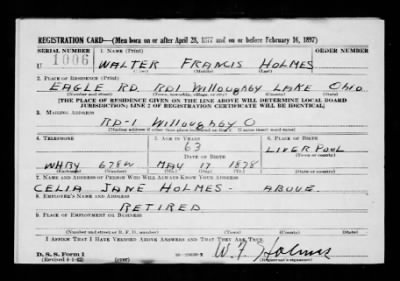 REGISTRATION CARD—(Men born on or after April 28, 1877 and on or before February 16, 1897)
SERIAL NUMBER 1. NAME (Print) ORDER NUMBER
U 1006 WALTER FRANCIS HOLMES
(First) (Middle) (Last)
2. PLACE OF RESIDENCE (Print)
EAGLE RD. RD1 Willoughby LAKE Ohio
(Number and street) (Town, township, village, or city) (County) (State)
[THE PLACE OF RESIDENCE GIVEN ON THE LINE ABOVE WILL DETERMINE LOCAL BOARD
JURISDICTION; LINE 2 OF REGISTRATION CERTIFICATE WILL BE IDENTICAL]
3. MAILING ADDRESS
RD-1 Willoughby O
[Mailing address if other than place indicated on line 2. If same insert word same]
4. TELEPHONE 5. AGE IN YEARS 6. PLACE OF BIRTH
63 LIVERPOOL
DATE OF BIRTH (Town or county)
WHBY 678W MAY 17 1878
(Exchange) (Number) (Mo.) (Day) (Yr.) (State or country)
7. NAME AND ADDRESS OF PERSON WHO WILL ALWAYS KNOW YOUR ADDRESS
CELIA JANE HOLMES - ABOVE
8. EMPLOYER'S NAME AND ADDRESS
RETIRED
9. PLACE OF EMPLOYMENT OR BUSINESS
(Number and street or R. F. D. number) (Town) (County) (State)
I AFFIRM THAT I HAVE VERIFIED ABOVE ANSWERS AND THAT THEY ARE TRUE.
D. S. S. Form 1 W. F. Holmes
(Revised 4-1-42)